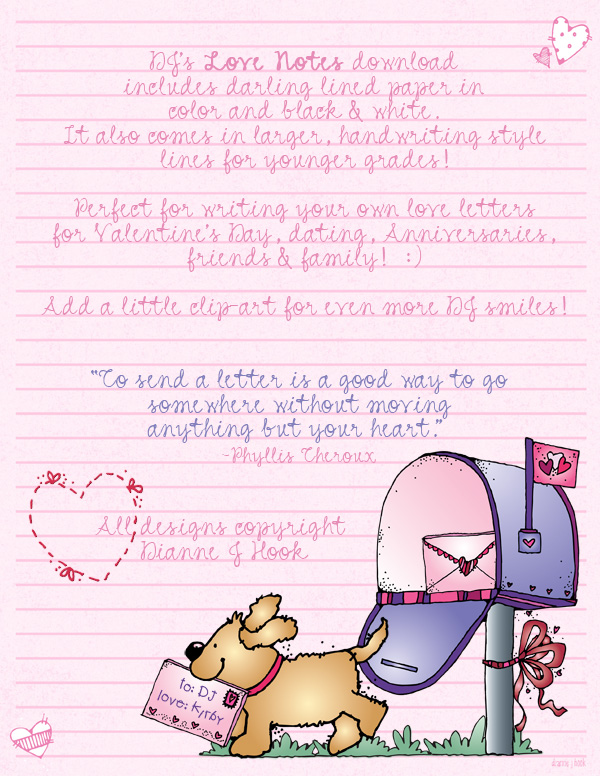 DJ's Love Notes download
includes darling lined paper in
color and black & white.
It also comes in larger, handwriting style
lines for younger grades!
Perfect for writing your own love letters
for Valentine's Day, dating, Anniversaries,
friends & family!  :)
Add a little clip-art for even more DJ smiles!
"To send a letter is a good way to go
somewhere without moving
anything but your heart."
-Phyllis Theroux
All designs copyright
Dianne J Hook
to: DJ
love: Kyrby
dianne j hook